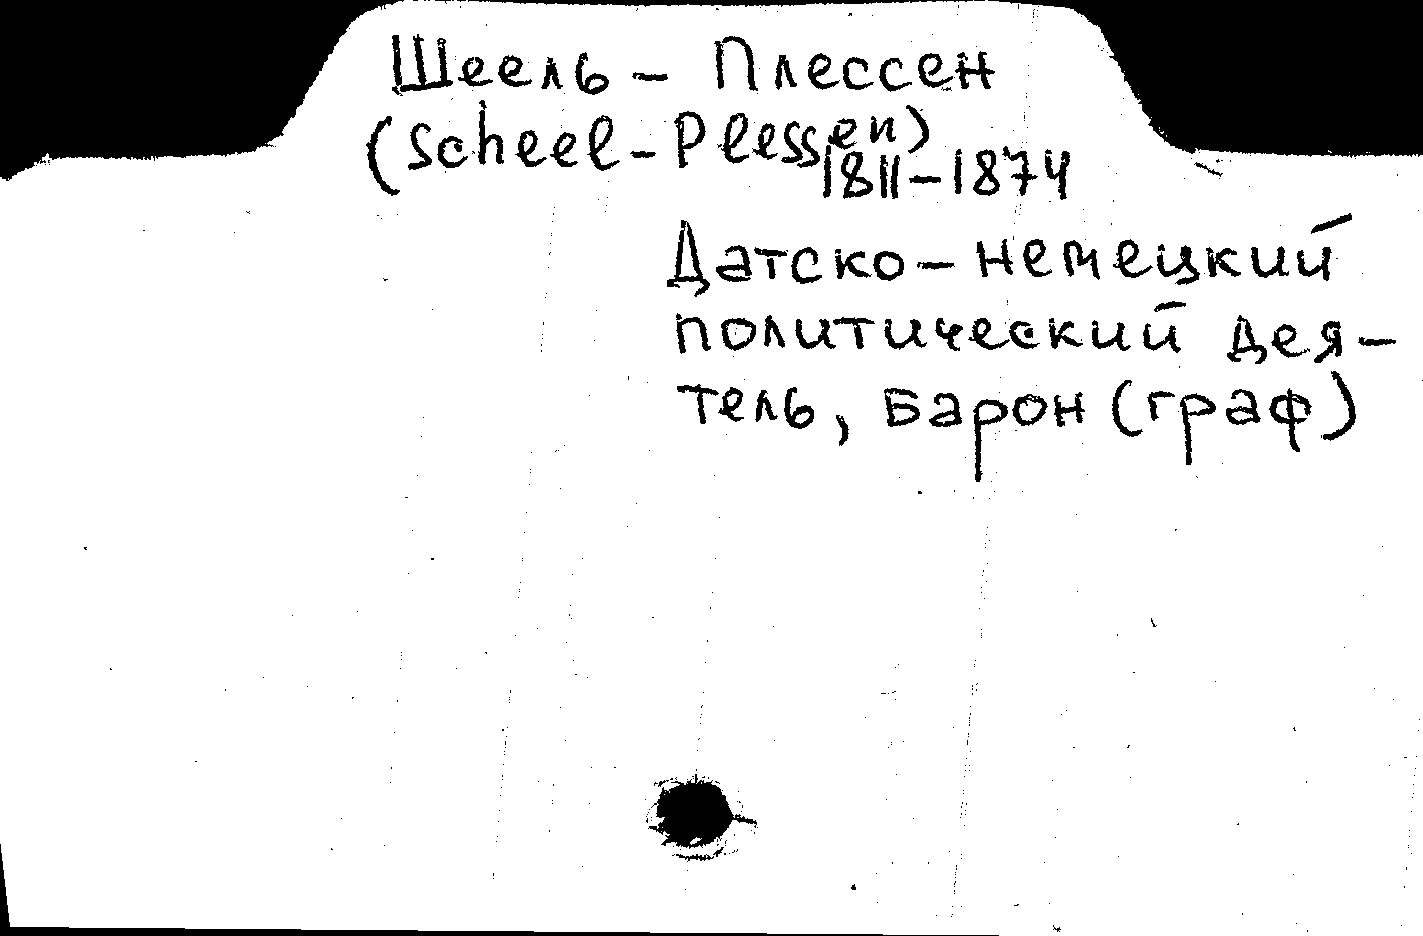 Шеель - Плессен
(Scheel-Plessen)
1811-1874
Датско-немецкий
политический дея-
тель, барон (граф)